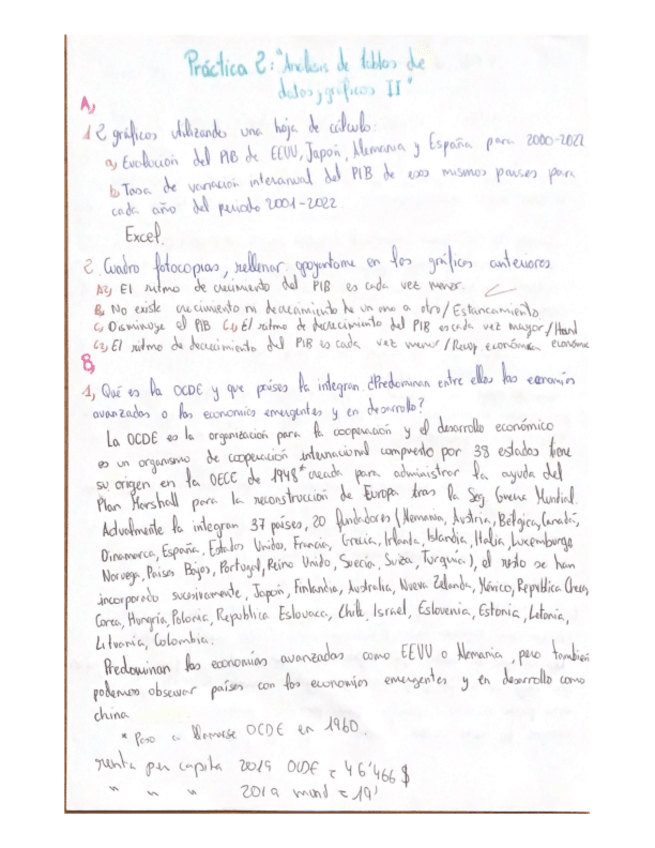 Práctica 2: "Análisis de tablas de
datos y gráficos II"
A)
1 2 gráficos utilizando una hoja de cálculo:
a) Evolución del PIB de EEUU, Japón, Alemania y España para 2000-2022
b) Tasa de variación interanual del PIB de esos mismos países para
cada año del periodo 2001-2022
Excel.
2. Cuadro fotocopias, rellenar apoyantome en los gráficos anteriores
A2) El ritmo de crecimiento del PIB es cada vez menor.
B. No existe crecimiento ni decrecimiento de un ano a otro/Estancamiento
C) Disminuye el PIB C1) El ritmo de decrecimiento del PIB es cada vez mayor/Hard
C2) El ritmo de decrecimiento del PIB es cada vez menor/Recup económica económe
B)
1) Qué es la OCDE y que países la integran ¿Predominan entre ellos las economías
avanzadas o las economias emergentes y en desarrollo?
La OCDE es la organización para la cooperación y el desarrollo económico
es un organismo de cooperación internacional compuesto por 38 estados tiene
su origen en la OECC de 1948* creada para administrar la ayuda del
Plan Marshall para la reconstrucción de Europa tras la Seg Guerra Mundial.
Actualmente la integran 37 países, 20 fundadores (Alemania, Austria, Bélgica, Canadá,
Dinamarca, España, Estados Unidos, Francia, Grecia, Irlanda, Islandia, Italia, Luxemburgo
Noruega, Países Bajos, Portugal, Reino Unido, Suecia, Suiza, Turquía), el resto se han
incorporado sucesivamente, Japón, Finlandia, Australia, Nueva Zelanda, México, República Checa,
Corea, Hungría, Polonia, Republica Eslovaca, Chile, Israel, Eslovenia, Estonia, Letonia,
Lituania, Colombia.
Predominan las economías avanzadas como EEUU o Alemania, pero también
podemos observar países con las economías emergentes y en desarrollo como
china
* Paso a llamarse OCDE en 1960.
renta per capita 2019 OCDE = 46'466 $
" " " 2019 mund = 19'